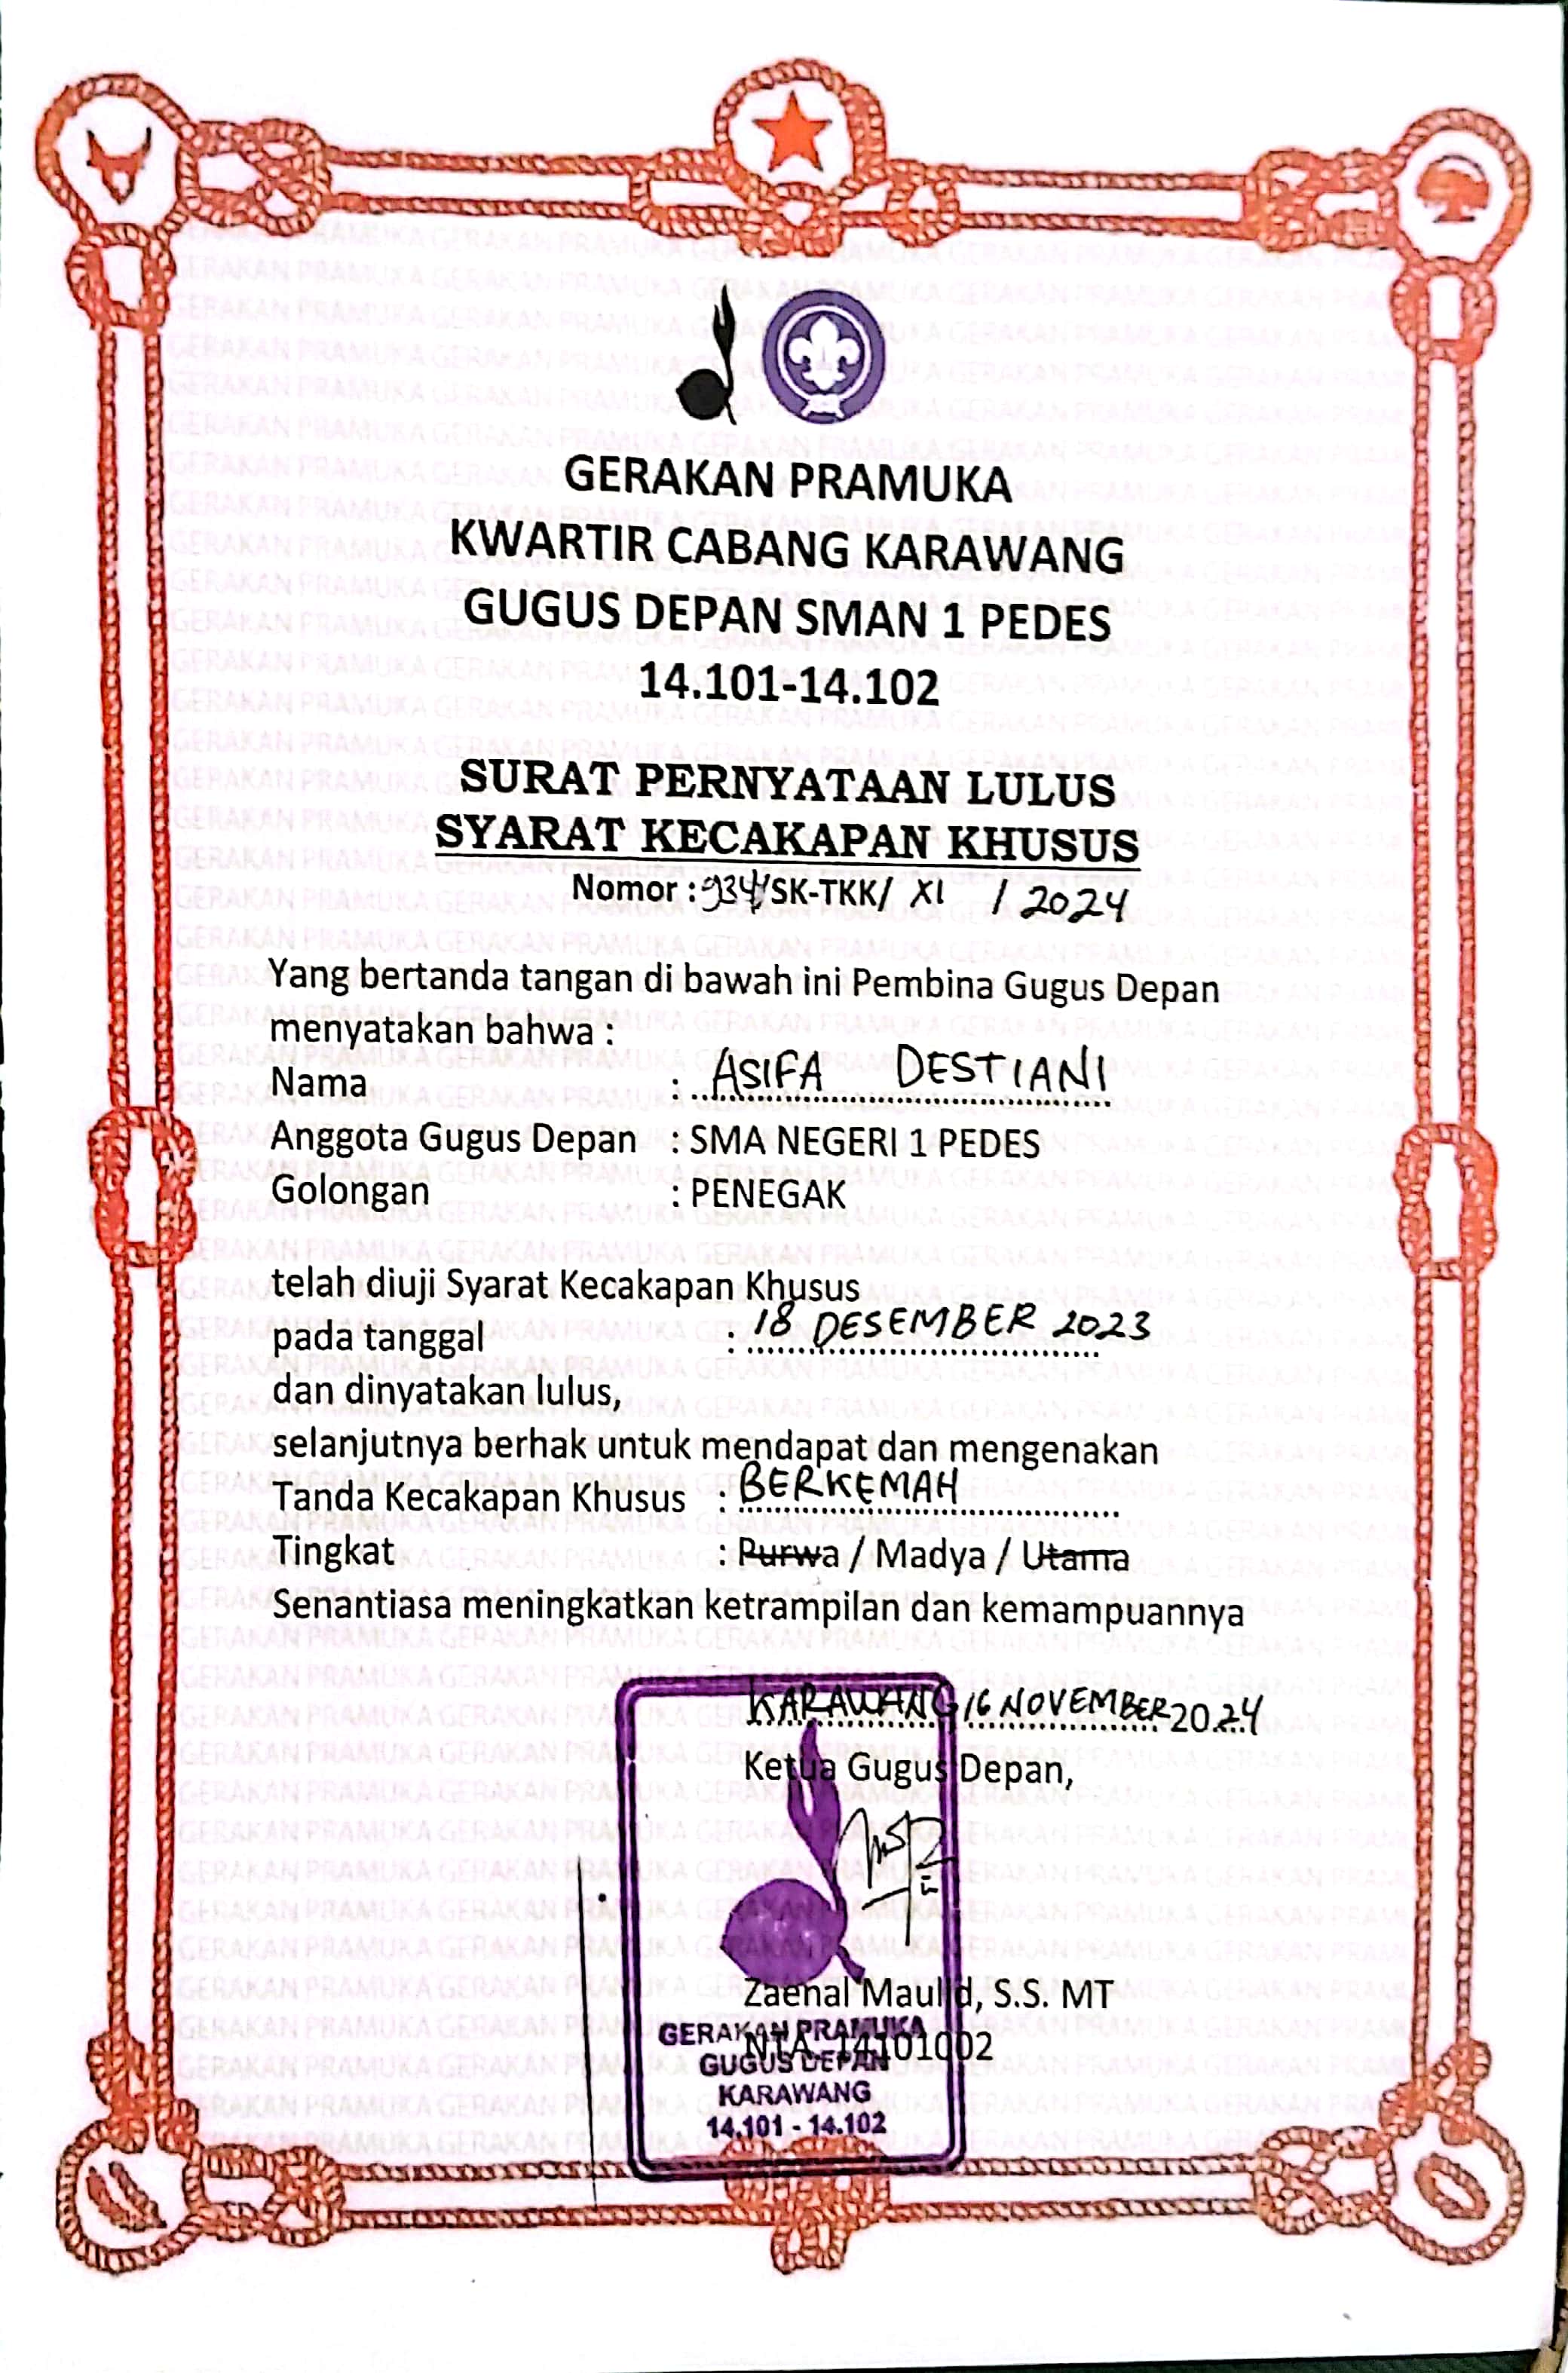 GERAKAN PRAMUKA
KWARTIR CABANG KARAWANG
GUGUS DEPAN SMAN 1 PEDES
14.101-14.102
SURAT PERNYATAAN LULUS
SYARAT KECAKAPAN KHUSUS
Nomor : 934/SK-TKK/ XI / 2024
Yang bertanda tangan di bawah ini Pembina Gugus Depan
menyatakan bahwa :
Nama : ASIFA DESTIANI
Anggota Gugus Depan : SMA NEGERI 1 PEDES
Golongan : PENEGAK
telah diuji Syarat Kecakapan Khusus
pada tanggal : 18 DESEMBER 2023
dan dinyatakan lulus,
selanjutnya berhak untuk mendapat dan mengenakan
Tanda Kecakapan Khusus : BERKEMAH
Tingkat : Purwa / Madya / Utama
Senantiasa meningkatkan ketrampilan dan kemampuannya
KARAWANG 16 NOVEMBER 2024
Ketua Gugus Depan,
Zaenal Maulid, S.S. MT
NTA. 14101002
GERAKAN PRAMUKA
GUGUS DEPAN
KARAWANG
14.101 - 14.102